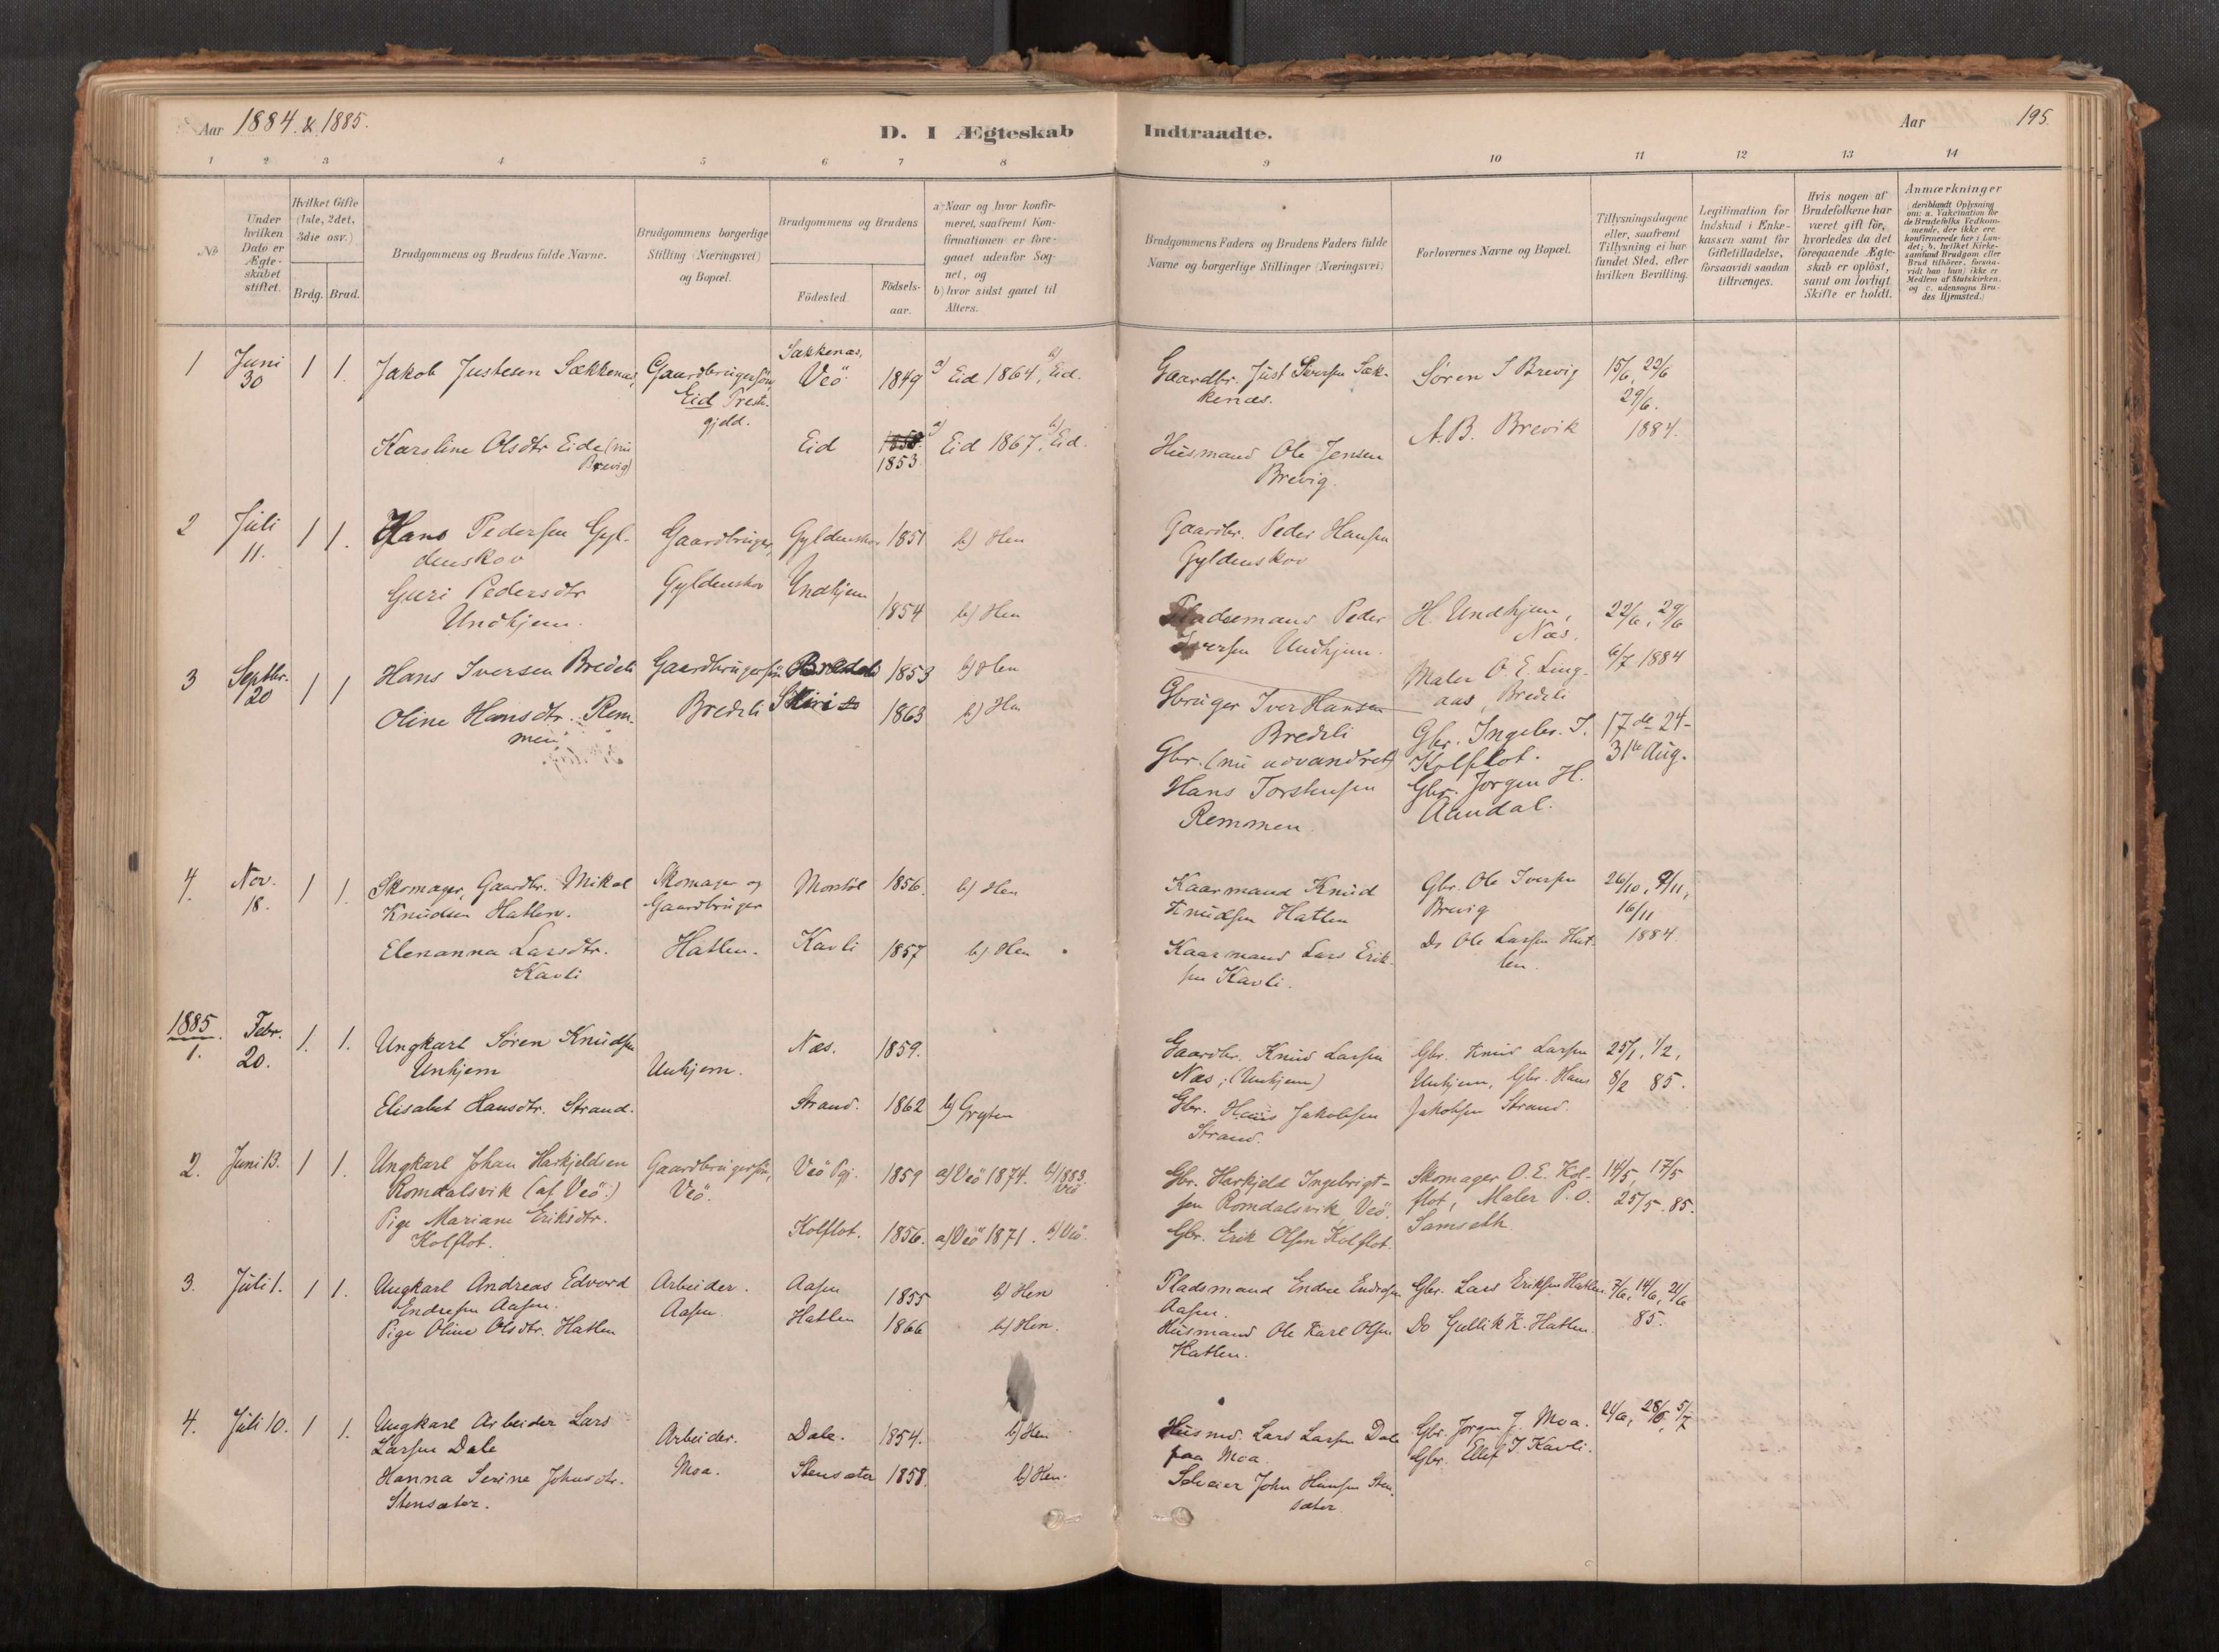 Aar 1884. & 1885.
D. I Ægteskab Indtraadte.
Aar 195.
1 2 3 4 5 6 7 8 9 10 11 12 13 14
No
Under hvilken Dato er Ægteskabet stiftet.
Hvilket Gifte (1ste, 2det, 3die osv.)
Brdg. Brud.
Brudgommens og Brudens fulde Navne.
Brudgommens borgerlige Stilling (Næringsvei) og Bopæl.
Brudgommens og Brudens
Födested.
Födselsaar.
a) Naar og hvor konfirmeret, saafremt Konfirmationen er foregaaet udenfor Sognet, og
b) hvor sidst gaaet til Alters.
Brudgommens Faders og Brudens Faders fulde Navne og borgerlige Stillinger (Næringsvei)
Forlovernes Navne og Bopæl.
Tillysningsdagene eller, saafremt Tillysning ei har fundet Sted, efter hvilken Bevilling.
Legitimation for Indskud i Enkekassen samt for Giftetilladelse, forsaavidt saadan tiltrænges.
Hvis nogen af Brudefolkene har været gift för, hvorledes da det foregaaende Ægteskab er oplöst, samt om lovligt Skifte er holdt.
Anmærkninger (deriblandt Oplysning om: a. Vakcination for de Brudefolks Vedkommende, der ikke ere konfirmerede her i Landet; b. hvilket Kirkesamfund Brudgom eller Brud tilhörer, forsaavidt han (hun) ikke er Medlem af Statskirken, og c. udensogns Brudes Hjemsted.)
1 Juni 30 1 1.
Jakob Justesen Sækkenæs,
Gaardbrugersön,
Eid Preste-
gjeld.
Sækkenæs,
Veö 1849 a) Eid 1864, b) Eid.
Gaardbr. Just Iversen Sæk-
kenæs.
Søren I Brevig
15/6, 22/6
29/6.
1884.
Karoline Olsdtr Eide (nu
Brevig)
Eid 1853. a) Eid 1867, b) Eid.
Husmand Ole Jensen
Brevig.
A. B. Brevik
2 Juli 11. 1 1.
Hans Pedersen Gyl-
denskov
Gaardbruger,
Gyldenskov
Gyldenskov 1851 b) Hen
Gaardbr. Peder Hansen
Gyldenskov
Guri Pedersdtr
Undhjem.
Undhjem 1854 b) Hen
Pladsemand Peder
Iversen Undhjem.
H. Undhjem,
Næs.
Maler O. E. Ling-
aas, Bredeli
22/6, 29/6
6/7 1884
3 Septbr. 20 1 1
Hans Iversen Bredeli
Gaardbrugersön
Bredeli
Bredeli 1853 b) Hen
Gbruger Iver Hansen
Bredeli
Gbr. Ingebr. I.
Kolflot.
17de 24-
31te Aug.
Oline Hansdtr. Rem-
men
1863 b) Hen
Gbr. (nu udvandret)
Hans Torstensen
Remmen
Gbr. Jørgen H.
Aandal.
4. Nov. 18. 1 1.
Skomager, Gaardbr. Mikal
Knudsen Hatlen.
Skomager og
Gaardbruger
Hatlen.
Monsöl 1856. b) Hen
Kaarmand Knud
Knudsen Hatlen
Gbr. Ole Iversen
Brevig
26/10, 9/11,
16/11
1884.
Elenanna Larsdtr.
Kavli
Kavli 1857 b) Hen
Kaarmand Lars Erik-
sen Kavli.
Do Ole Larsen Hat-
len.
1885.
1. Febr. 20. 1. 1.
Ungkarl Søren Knudsen
Unhjem
Unhjem.
Næs. 1859.
Gaardbr. Knud Larsen
Næs, (Unhjem)
Gbr. Knud Larsen
Unhjem, Gbr. Hans
Jakobsen Strand.
25/1, 1/2,
8/2 85.
Elisabet Hansdtr. Strand.
Strand. 1862 b) Grytten
Gbr. Hans Jakobsen
Strand.
2. Juni 13. 1 1.
Ungkarl Johan Harkjeldsen
Romdalsvik (af Veö.)
Gaardbrugersön,
Veö.
Veö Pgj. 1859 a) Veö 1874. b) 1883.
Veö
Gbr. Harkjeld Ingebrigt-
sen Romdalsvik Veö.
Skomager O. E. Kol-
flot, Maler P. O.
Samseth
14/5, 17/5
25/5-85.
Pige Mariane Eriksdtr.
Kolflot.
Kolflot. 1856. a) Veö 1871. b) Veö.
Gbr. Erik Olsen Kolflot.
3. Juli 1. 1 1.
Ungkarl Andreas Edvard
Endresen Aasen.
Arbeider.
Aasen.
Aasen 1855 b) Hen
Pladsmand Endre Endresen
Aasen.
Gbr. Lars Eriksen Hatlen.
7/6, 14/6, 21/6
85.
Pige Oline Olsdtr. Hatlen
Hatlen 1866 b) Hen.
Husmand Ole Karl Olsen
Hatlen.
Do Gullik K. Hatlen.
4. Juli 10. 1 1.
Ungkarl Arbeider Lars
Larsen Dale
Arbeider.
Moa.
Dale. 1854. b) Hen
Husmd. Lars Larsen Dale
paa Moa.
Gbr. Jørgen J. Moa.
Gbr. Ellef I. Kavli.
21/6, 28/6, 5/7
Hanna Serine Johnsdtr.
Stensæter.
Stensæter 1858. b) Hen.
Selveier John Hansen Sten-
sæter